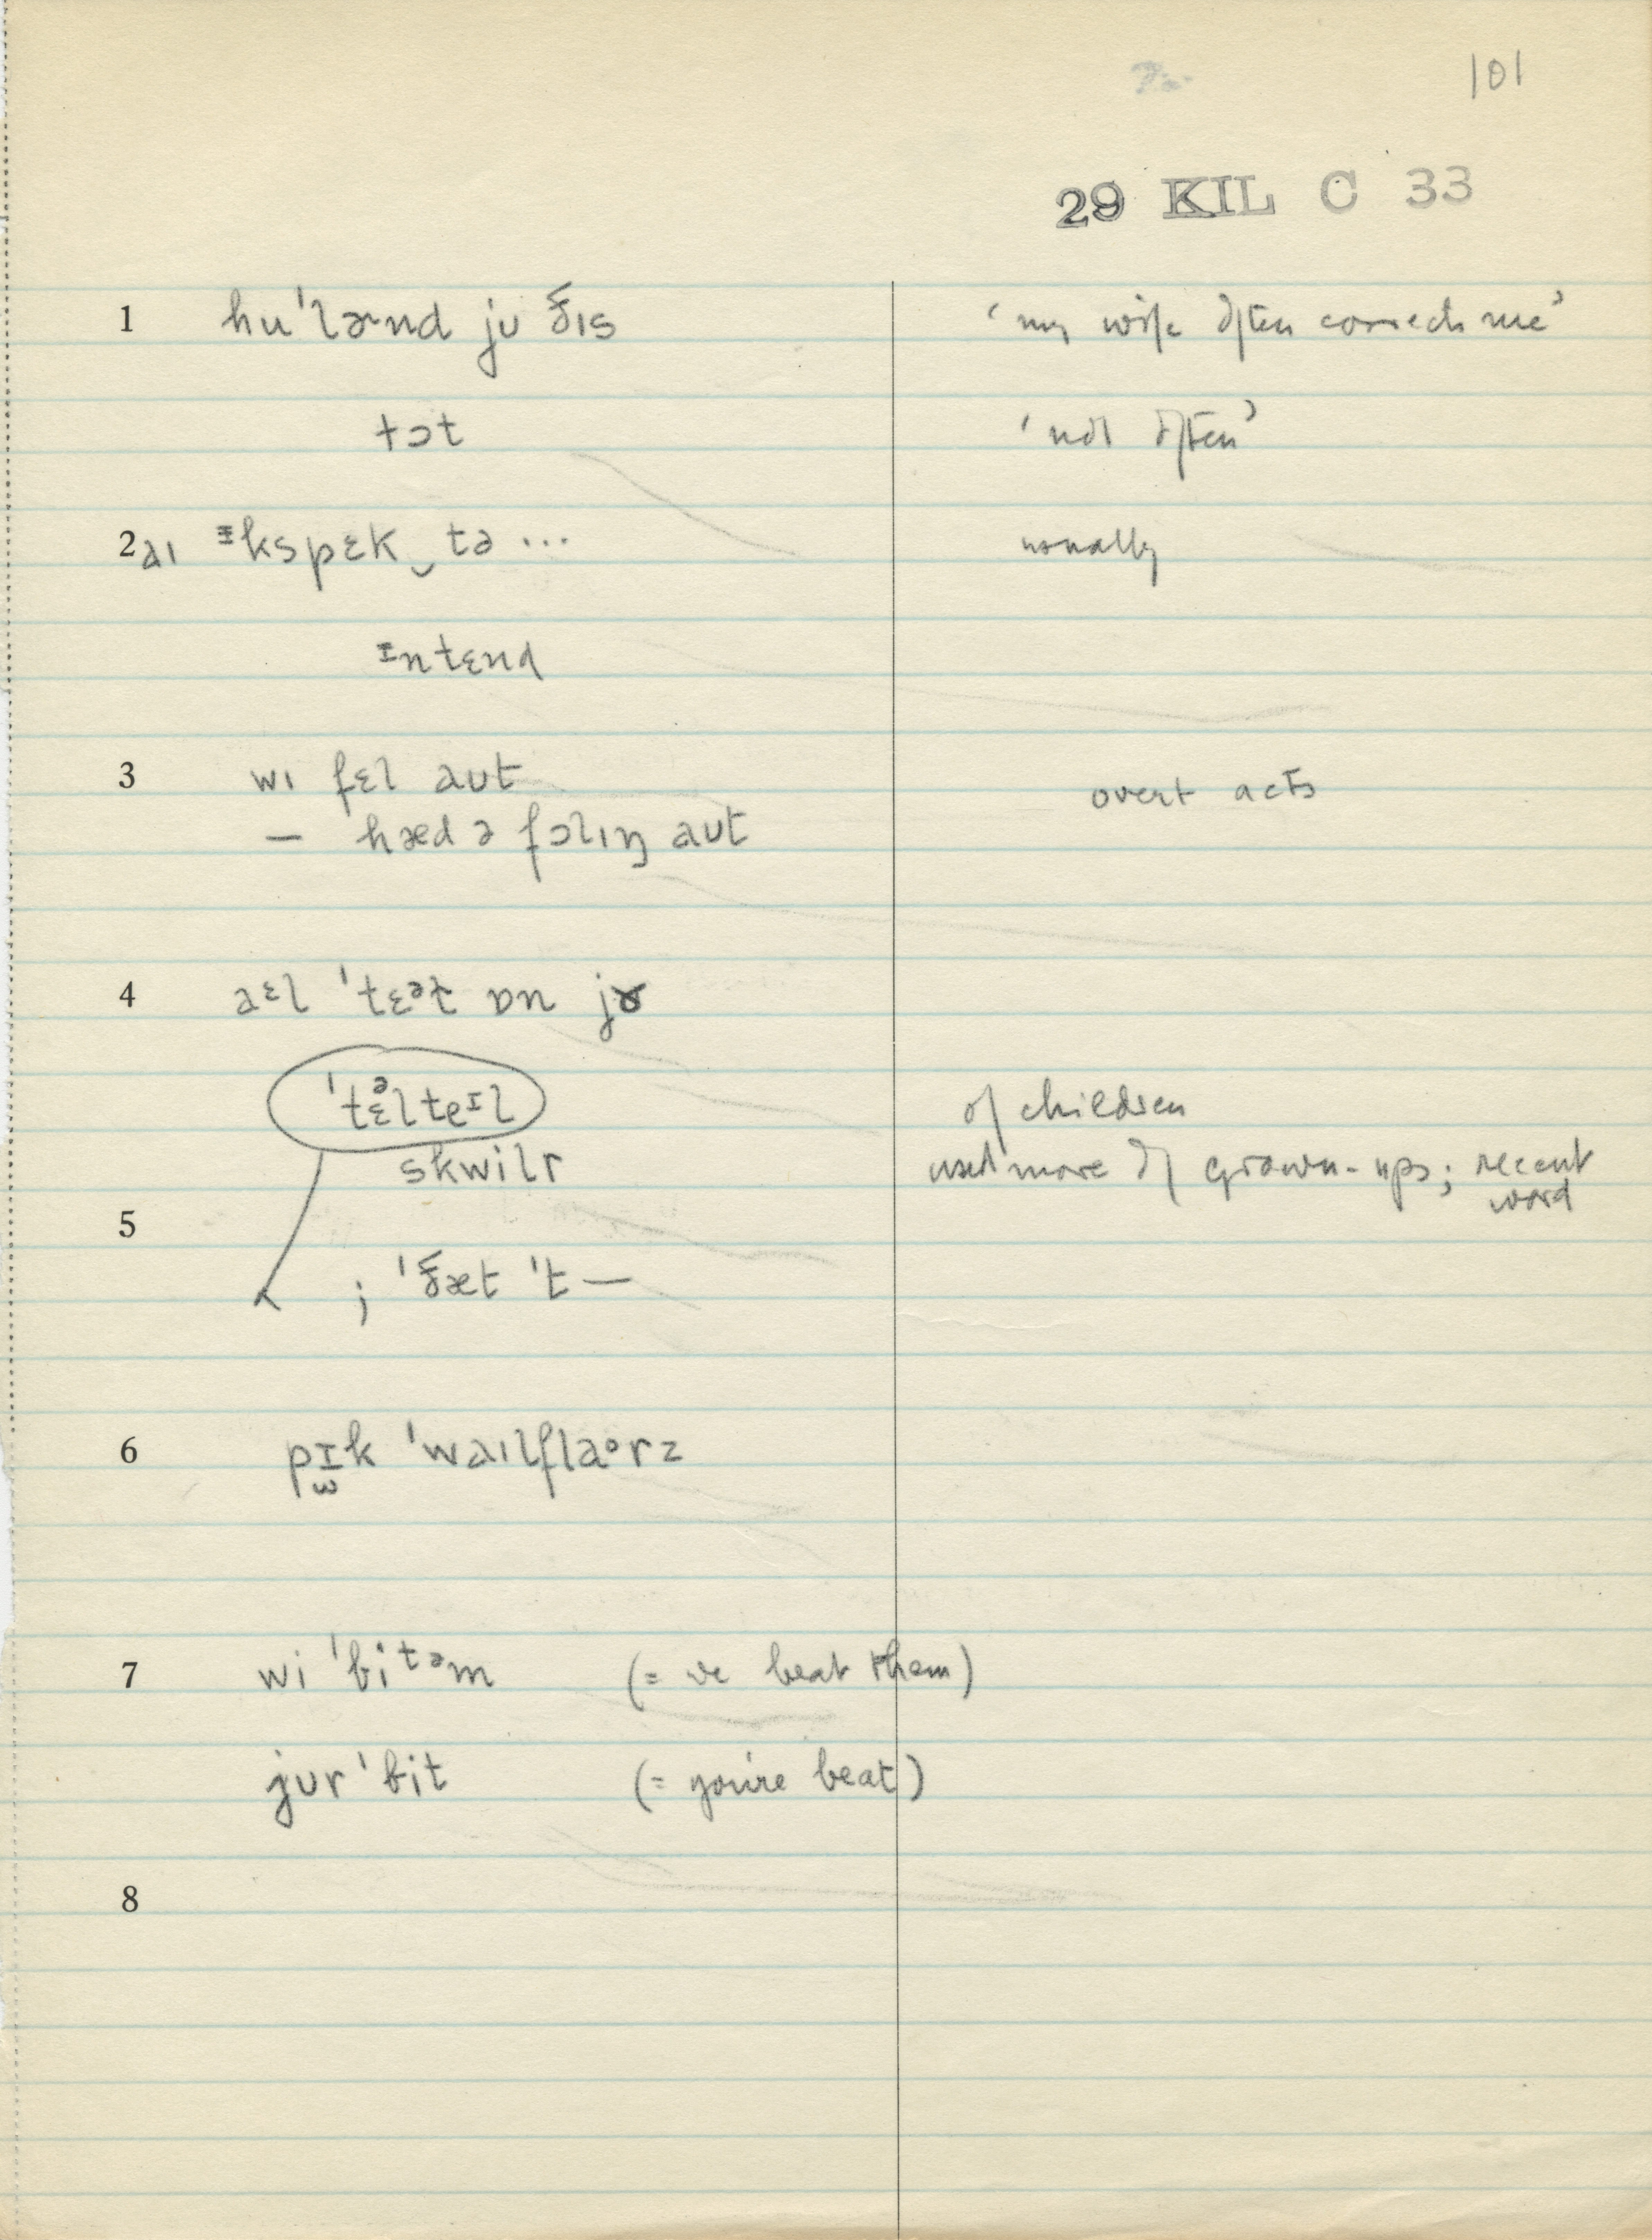 101
29 KIL C 33
1 hu ˈlɚnd jʊ ðɪs ‘my wife often corrects me’
tɔt ‘not often’
2 aɪ ᴵkspɛk‿tə ... usually
ᴵntɛnd
3 wɪ fɛl aʊt overt acts
— hæd ə fɔlɪŋ aʊt
4 aᵋl ˈtɛᵊt ɒn jɤ
ˈtɛᵊlteᴵl of children
skwilr used more of grown-ups; recent word
5
; ˈðæt ˈt —
6 pɪk ˈwaɪlflaᵒrz
7 wi ˈbiᵗᵊm (= we beat them)
jʊr ˈbit (= you're beat)
8